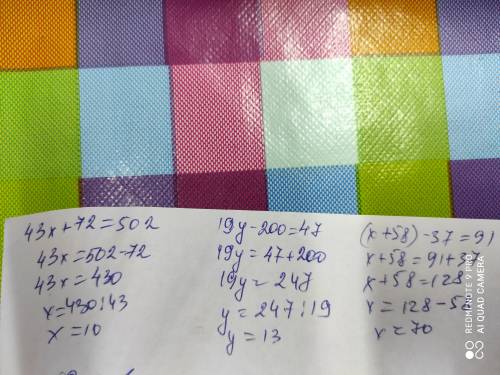 43x+72=502
43x=502-72
43x=430
x=430:43
x=10
19y-200=47
19y=47+200
19y=247
y=247:19
y=13
(x+58)-37=91
x+58=91+37
x+58=128
x=128-58
x=70
REDMI NOTE 9 PRO
AI QUAD CAMERA